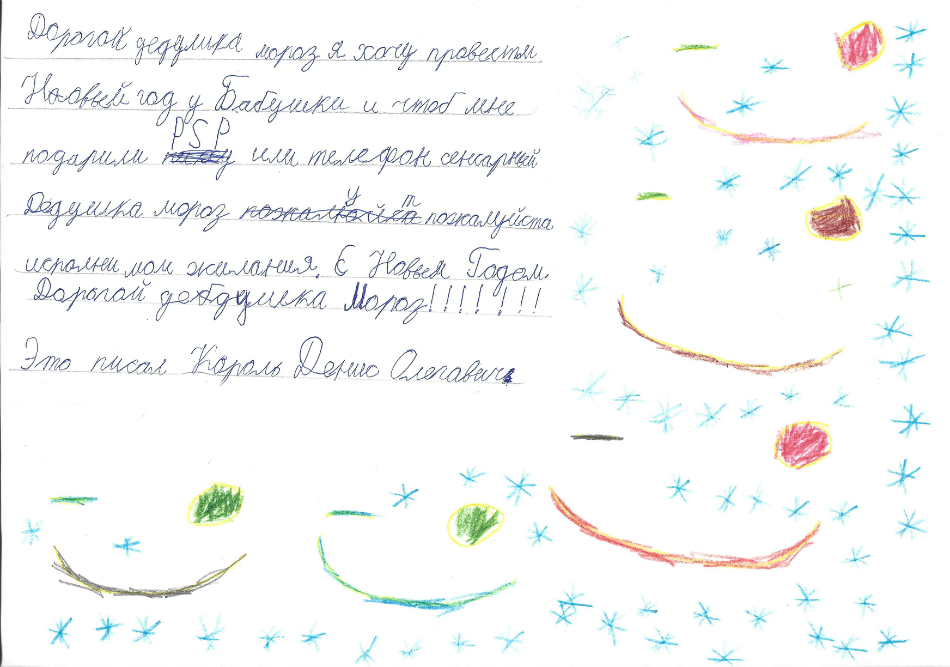 Дорогой дедулика мороз я хочу провезти
Новый год у Бабушки и чтоб мне
подарили PSP или телефон сенсарный
Дедушка мороз пожалуйста
исполни мои жилания. С Новым Годом
Дорогой дедушка Мороз!!!!!!!
Это писал Король Денис Олегавич.